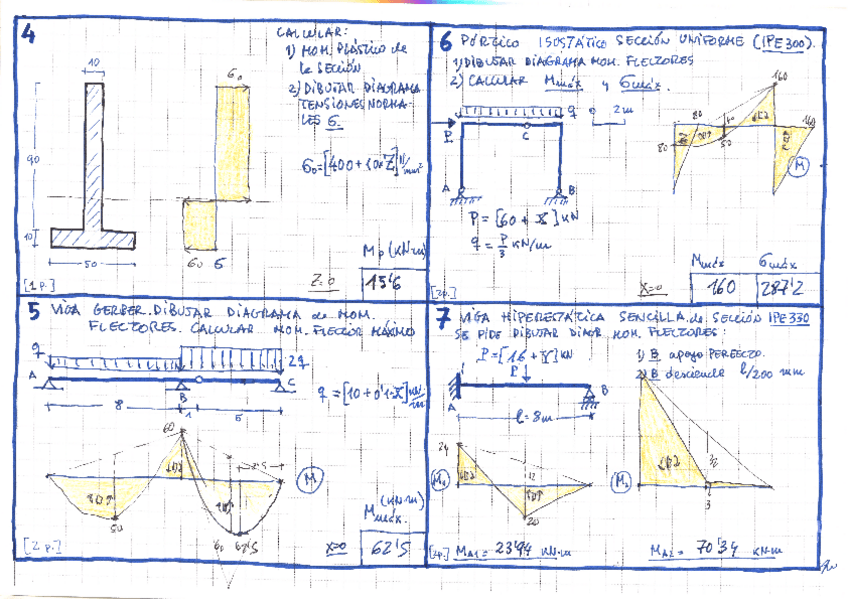 4
CALCULAR:
1) MOM. PLÁSTICO de
la SECCIÓN
2) DIBUJAR DIAGRAMA
TENSIONES NORMA-
LES σ.
10
90
10
50
σ₀
σ₀ σ
σ₀=[400+10·Z] N/mm²
Mp (kN·m)
Z=0
45'6
[1p.]
6 PÓRTICO ISOSTÁTICO SECCIÓN UNIFORME (IPE300).
1) DIBUJAR DIAGRAMA MOM. FLECTORES
2) CALCULAR Mmáx y σmáx.
q
0 2m
P
C
A
B
P=[60+X] kN
q = P/3 kN/m
160
80
80
50
160
M
Mmáx σmáx
X=0
160 287'2
[2p.]
5 VIGA GERBER. DIBUJAR DIAGRAMA de MOM.
FLECTORES. CALCULAR MOM. FLECTOR MÁXIMO
q
2q
A
B
C
8
1
5
q = [10+0'1·X] kN/m
60
2'5
M
50
62'5
(kN·m)
Mmáx.
X=0
62'5
[2 p.]
7 VIGA HIPERESTÁTICA SENCILLA de SECCIÓN IPE330
SE PIDE DIBUJAR DIAGR. MOM. FLECTORES:
P=[16+X] kN
P
1) B apoyo PERFECTO.
2) B desciende l/200 mm
A
B
l=8m
24
M₁
20
M₂
32
3
[2p.] MA1= 23'94 kN·m
MA2= 70'34 kN·m